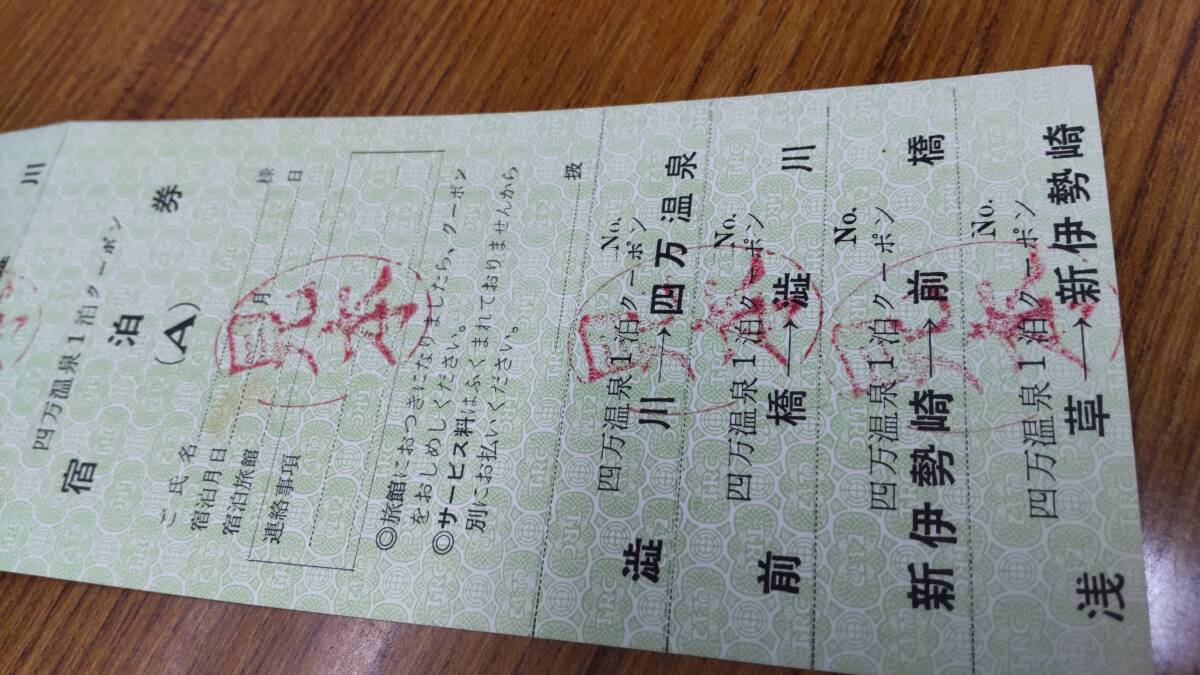 川
四万温泉1泊クーポン
宿泊券
(A)
ご氏名 様
宿泊月日 月 日
宿泊旅館
連絡事項
◎旅館におつきになりましたら、クーポン
をおしめしください。
◎サービス料はふくまれておりませんから
別にお払いください。
扱
No.
四万温泉1泊クーポン
澁川→四万温泉
No.
四万温泉1泊クーポン
前橋→澁川
No.
四万温泉1泊クーポン
新伊勢崎→前橋
No.
四万温泉1泊クーポン
浅草→新伊勢崎
見本
見本
見本